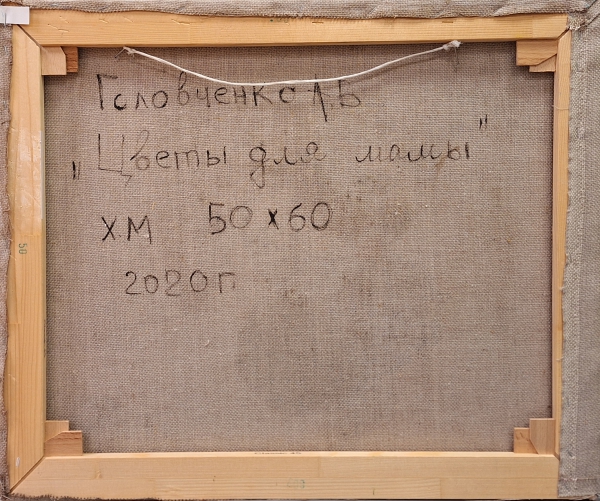 Головченко А Б
„Цветы для мамы"
ХМ 50×60
2020г
50